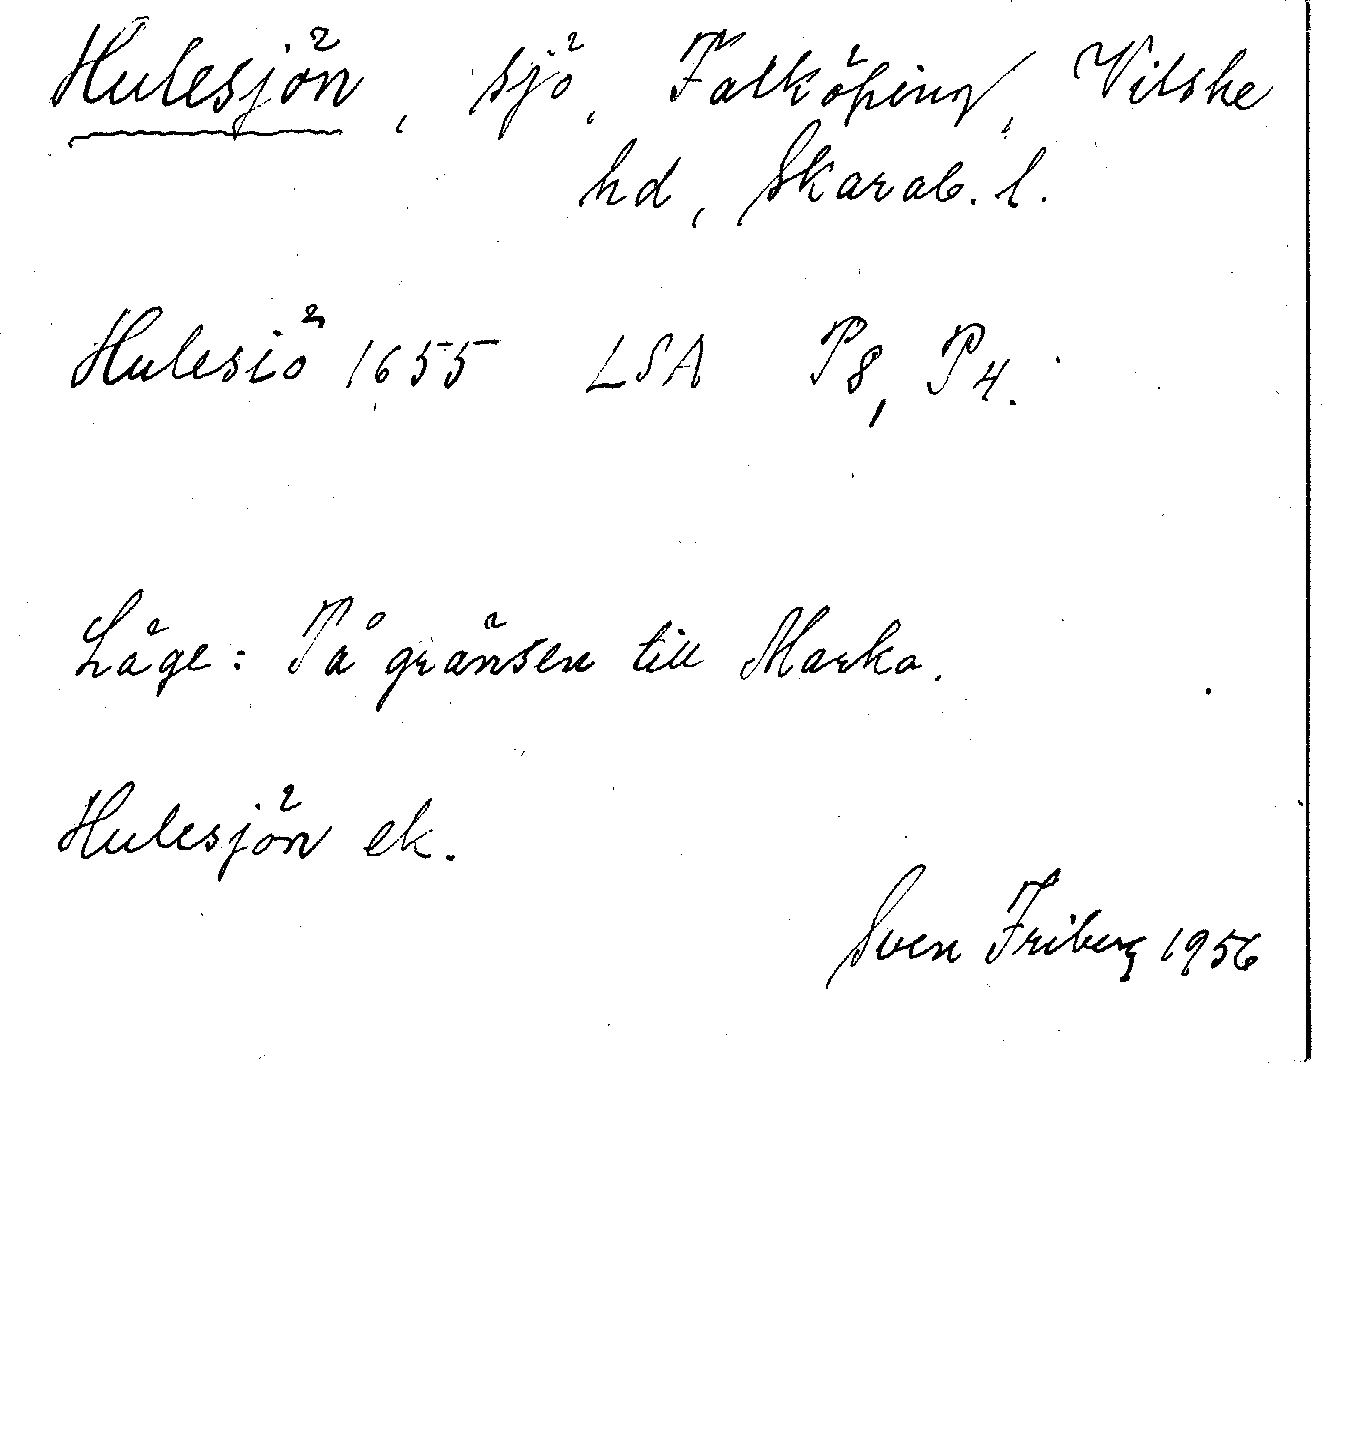 Hulesjön, sjö, Falköping, Vilske
hd, Skarab. l.
Hulesiö 1655 LSA P8, P4.
Läge: På gränsen till Marka.
Hulesjön ek.
Sven Friberg 1956